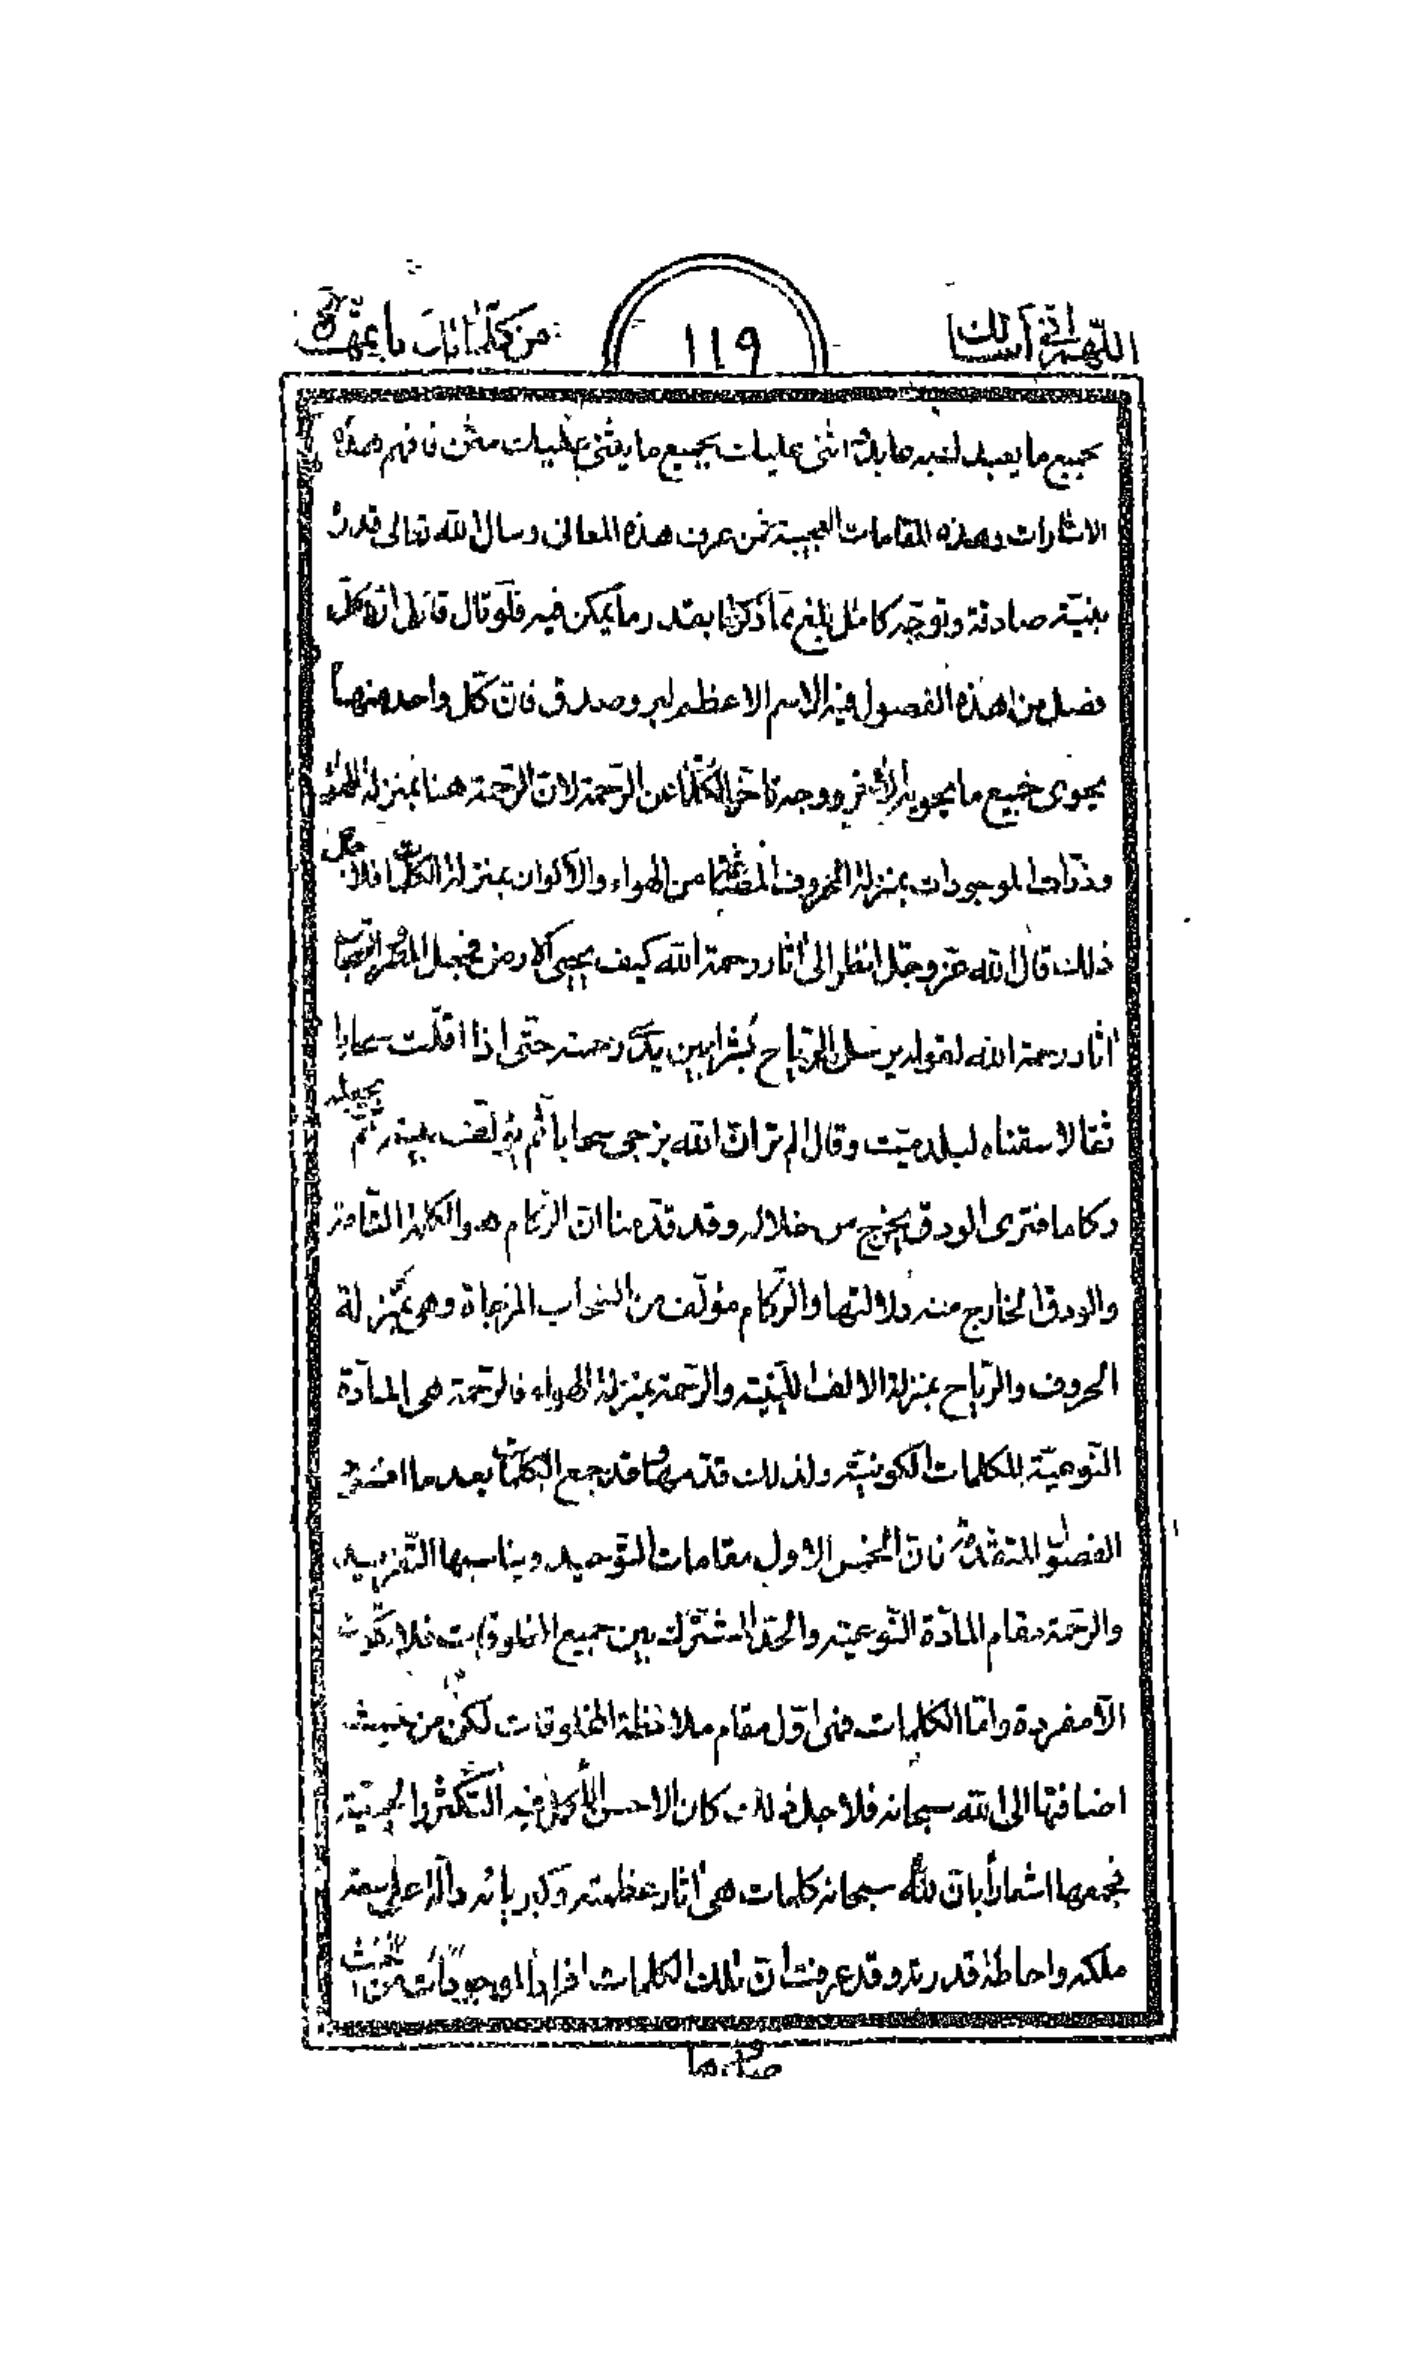 اللّهمّ انّی أسالك
١١٩
من كلماتك باتمّها
بجميع ما يعبد لعبه عابد اثنى عليك بجميع ما يثنى عليك مثن فافهم هذه
الاشارات وهذه المقامات العجيبة فمن عرف هذه المعانى وسال الله تعالى قدره
بنيّة صادقة وتوجّه كامل بلغ ما ذكرنا بقدر ما يمكن فيه فلو قال قائل ان كلّ
فصل من هذه الفصول فيه الاسم الاعظم لبر وصدق فان كلّ واحد منها
يحوى جميع ما يحويه الاخر ووجه تاخر الكلمات عن الرّحمة لان الرّحمة هنا بمنزلة الهواء
وذرّات الموجودات بمنزلة الحروف من الهواء والاكوان بمنزلة الكلمات فلاجل
ذلك قال الله عزّ وجلّ انظر الى آثار رحمة الله كيف يحيى الارض فجعل المطر
آثار رحمة الله لقوله يرسل الرّياح بُشرا بين يدى رحمته حتّى اذا اقلّت سحابا
ثقالا سقناه لبلد ميّت وقال الم تر انّ الله يزجى سحابا ثم يؤلّف بينه ثمّ يجعله
ركاما فترى الودق يخرج من خلاله وقد قدّمنا انّ الرّكام هو الكلمة التّامة
والودق الخارج منه دلالتها والرّكام مؤلّف من السّحاب المزجاة وهى بمنزلة
الحروف والرّياح بمنزلة الالف اللّينيّة والرّحمة بمنزلة الهواء فالرّحمة هى المادّة
النّوعيّة للكلمات الكونيّة ولذلك قدّمها وقد جمع الكلمات بعد ما افرد
الفصول المتقدّمة فانّ الخمس الاول مقامات التّوحيد ويناسبها التّفريد
والرّحمة مقام المادّة النّوعيّة والحدّ المشترك بين جميع المخلوقات فلا تكون
الّا مفردة وامّا الكلمات فهى اوّل مقام ملاحظة المخلوقات لكن من حيث
اضافتها الى الله سبحانه فلاجل ذلك كان الاحسن الأكمل فيه التّكثر والجمعيّة
فجمعها اشعاراً بانّ لله سبحانه كلمات هى آثار عظمته وكبريائه دالّة على سعة
ملكه واحاطة قدرته وقد عرفت أنّ تلك الكلمات افراد الموجودات من حيث
صدورها